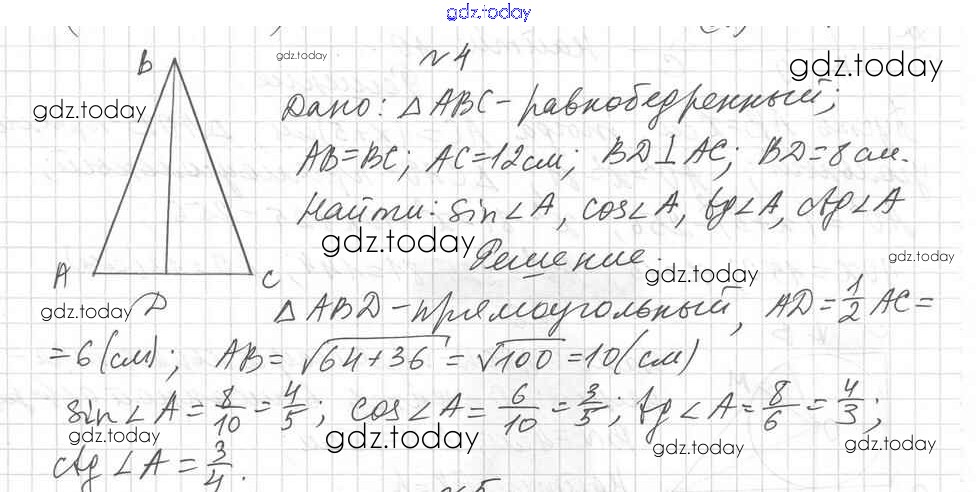 gdz.today
gdz.today
N4
B
gdz.today
gdz.today
Дано: △ABC - равнобедренный;
AB=BC; AC=12см; BD⊥AC; BD=8 см.
Найти: sin∠A, cos∠A, tg∠A, ctg∠A
gdz.today
Решение.
gdz.today
gdz.today
A
C
gdz.today
D
△ABD - прямоугольный, AD = 1/2 AC =
= 6 (см); AB = √64+36 = √100 = 10 (см)
sin∠A = 8/10 = 4/5; cos∠A = 6/10 = 3/5; tg∠A = 8/6 = 4/3;
gdz.today
gdz.today
gdz.today
gdz.today
ctg∠A = 3/4.
N5